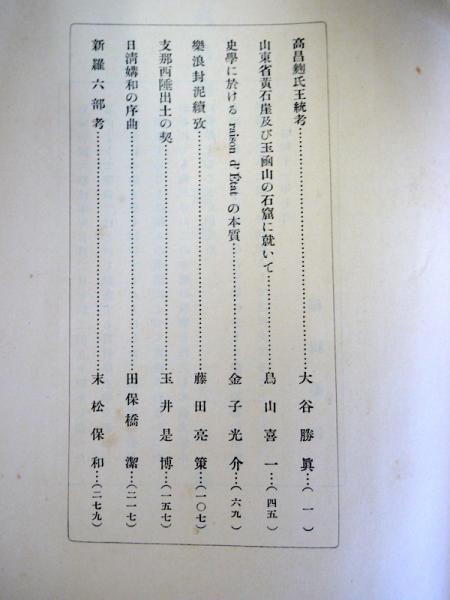 高昌麴氏王統考…………大谷勝眞…(一)
山東省黃石崖及び玉函山の石窟に就いて…………鳥山喜一…(四五)
史學に於ける raison d'État の本質…………金子光介…(六九)
樂浪封泥續攷…………藤田亮策…(一〇七)
支那西陲出土の契…………玉井是博…(一五七)
日淸媾和の序曲…………田保橋潔…(二一七)
新羅六部考…………末松保和…(二七九)